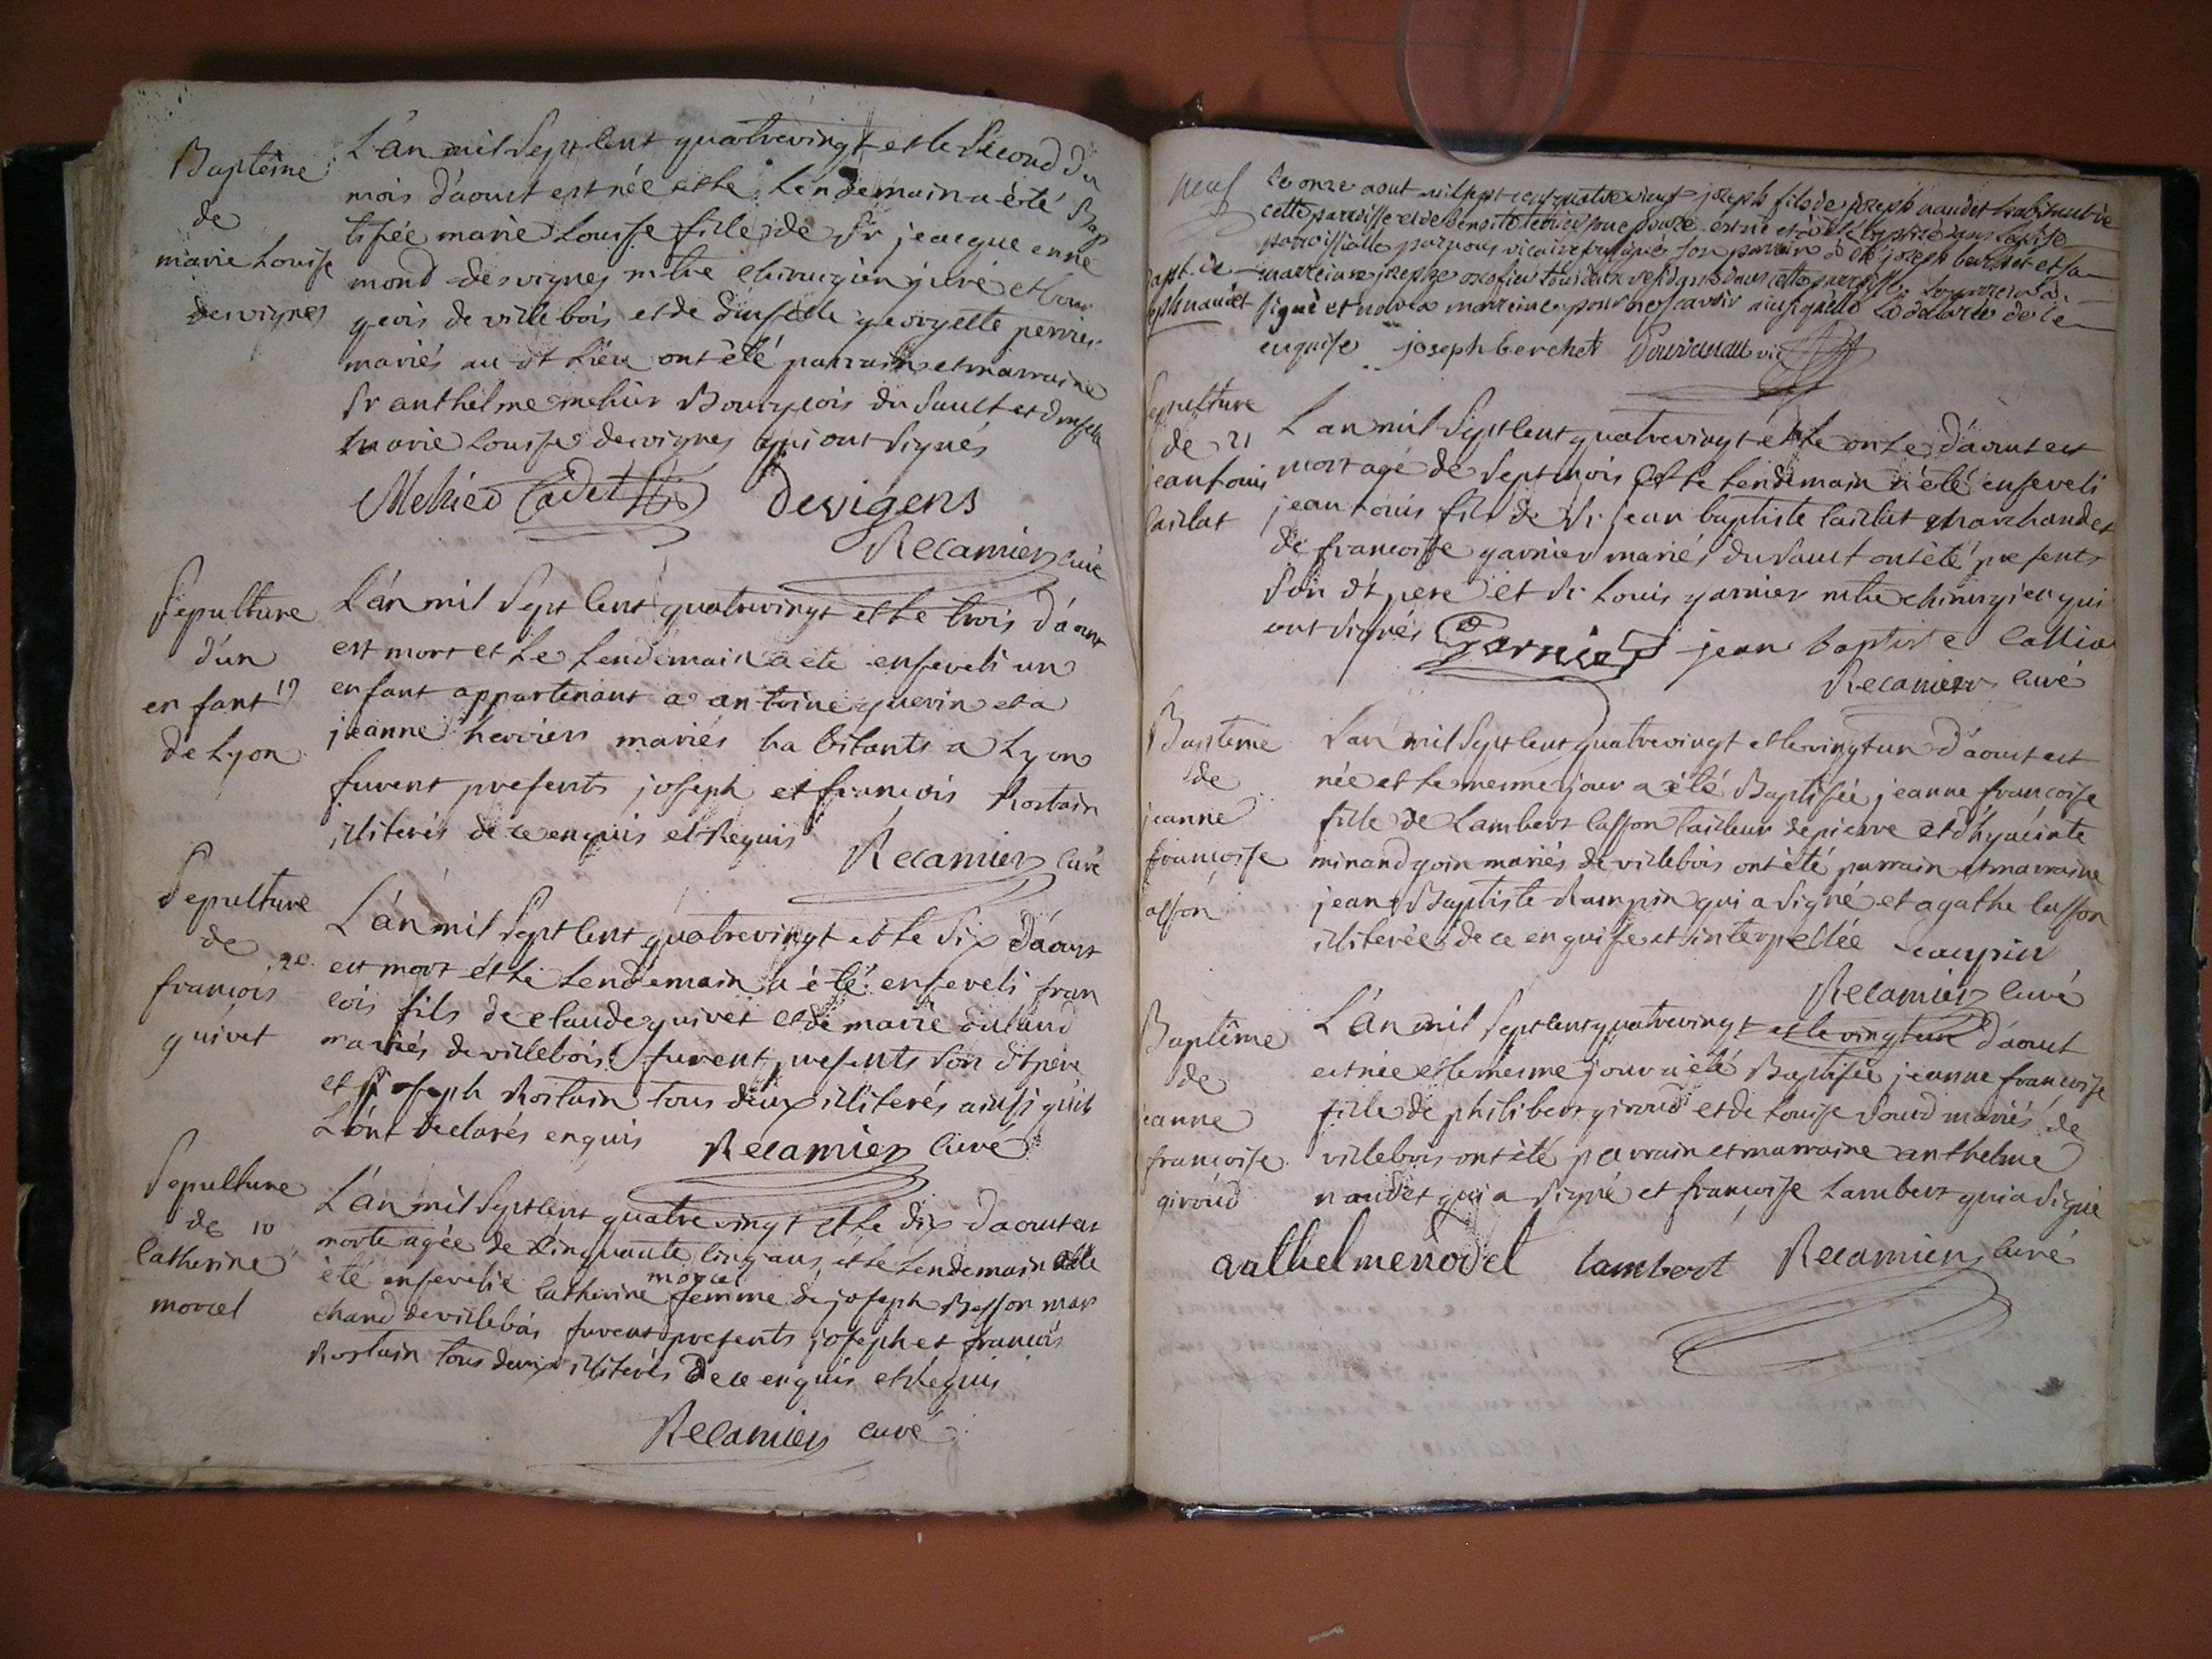 Baptême
de
marie Louise
desvignes
L'án mil Sept Cent quatrevingt et le Second du
mois d'áoust est née et le Lendemain a été Bap
tisée marie Louise fille de Sr jeacque enne
mond desvignes mtre chirurgien juré et bour
geois de villebois et de dmselle georgette perrier
mariés au dt Lieu ont été parrain et marraine
Sr anthelme mehier Bourgeois du Sault et dmselle
marie Louise desvignes qui ont Signés
Mehied Cadet Devigens
Recamier Curé
Sepulture
d'un
enfant 19
de Lyon
L'án mil Sept Cent quatrevingt et le trois d'áoust
est mort et Le Lendemain a été enseveli un
enfant appartenant a antoine guerin et a
jeanne herriers mariés habitants a Lyon
furent presents joseph et françois Rostain
illiterés de ce enquis et Requis
Recamier Curé
Sepulture
de 20
françois
guivet
L'án mil Sept Cent quatrevingt et le Six d'áoust
est mort et le Lendemain a été enseveli fran
cois fils de claude guivet et de marie
mariés de villebois furent presents Son dt père
et joseph Rostain tous deux illiterés ainsi qu'ils
L'ont declarés enquis Recamier Curé
Sepulture
de 10
Catherine
morcel
L'án mil Sept Cent quatrevingt et le dix d'aoust est
morte agée de Cinquante Cinq ans et le Lendemain a
été ensevelie Catherine morcel femme de joseph Besson mar
chand de villebois furent presents joseph et francois
Rostain tous deux illiterés de ce enquis et Requis
Recamier curé
neuf
bapt. de
joseph naudet
Le onze aout mil sept cent quatre vingt joseph fils de joseph naudet habitant de
cette paroisse et de Benoite son epouse est né et a été baptisé dans l'eglise
parroissialle par nous vicaire soussigné son parrain a été joseph berchet et sa
marreine tous deux residants dans cette parroisse. Le parrein a
signé et non la marreine pour ne scavoir ainsi qu'elle l'a declaré de ce
enquise joseph berchet vic
Sepulture
de 21
jean Louis
Caillat
L an mil Sept Cent quatrevingt et le onze d'áoust est
mort agé de Sept mois et le Lendemain a été enseveli
jean Louis fils de Sr jean baptiste Caillat marchand et
de françoise garnier mariés du Sault ont été presents
Son dt pere et Sr Louis garnier mtre chirurgien qui
ont Signés Garnier jean baptiste Callia
Recamier Curé
Bapteme
de
jeanne
françoise
Casson
L'an mil Sept Cent quatrevingt et le vingt un d'áoust est
née et le meme jour a été Baptisée jeanne françoise
fille de Lambert Casson tailleur de pierre et d'hyacinte
minandgoin mariés de villebois ont été parrain et marraine
jean Baptiste Rampin qui a Signé et agathe Casson
illiterée de ce enquise et interpellée
Recamier Curé
Baptême
de
jeanne
françoise
giroud
L'án mil Sept Cent quatrevingt et le vingt un d'áoust
est née et le meme jour a été Baptisée jeanne françoise
fille de philibert giroud et de Louise Soud mariés de
villebois ont été parrain et marraine anthelme
naudet qui a Signé et françoise Lambert qui a Signé
anthelme nodet lambert Recamier Curé